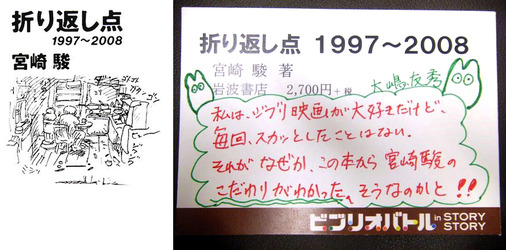 折り返し点
1997～2008
宮崎 駿
折り返し点 1997～2008
宮崎 駿 著
岩波書店 2,700円+税
大嶋友秀
私は、ジブリ映画が大好きだけど、
毎回、スカッとしたことはない。
それがなぜか、この本から宮崎駿の
こだわりがわかった。そうなのかと!!
ビブリオバトル in STORY STORY